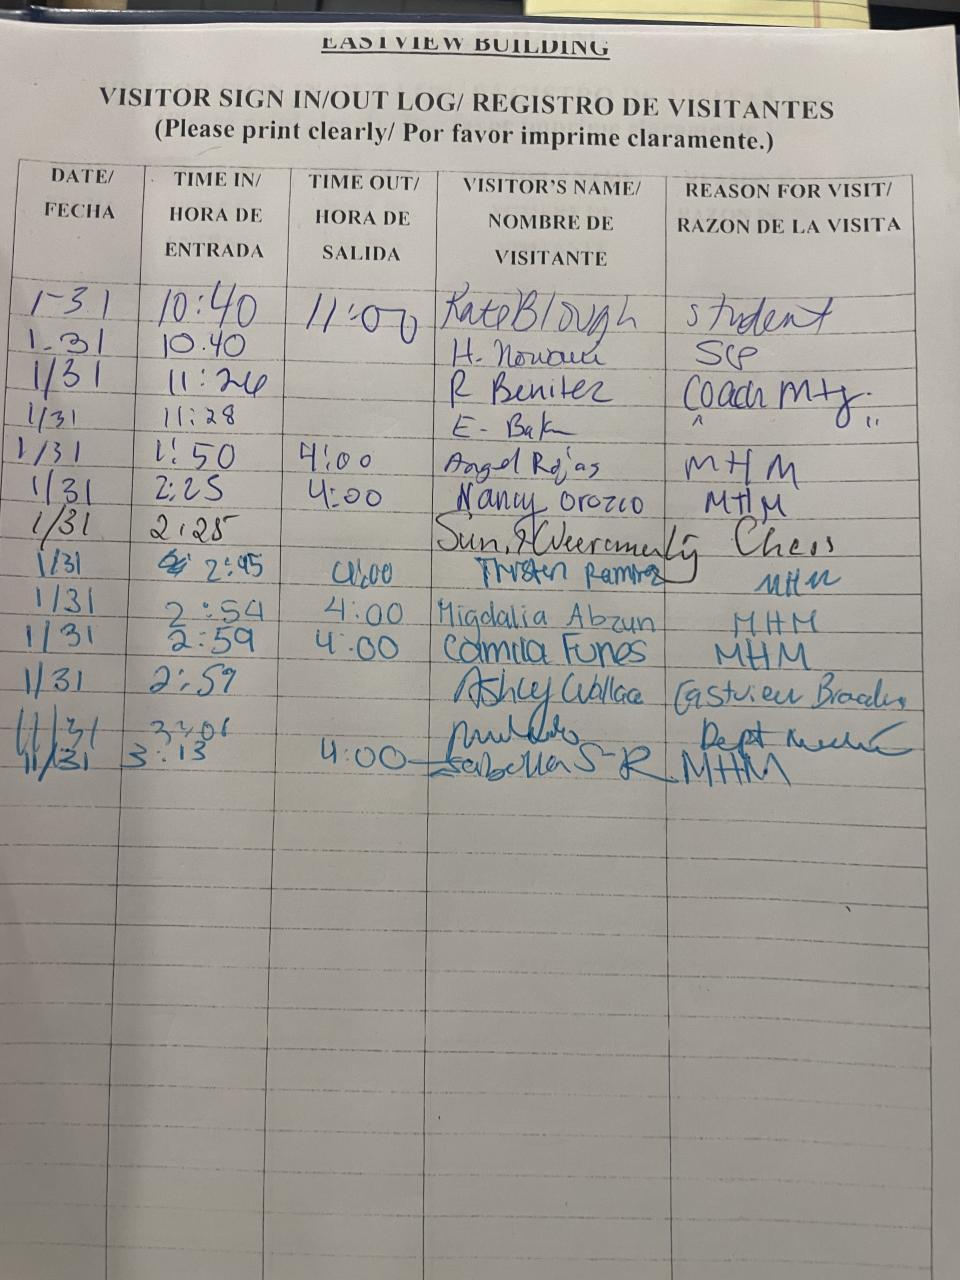 EASTVIEW BUILDING
VISITOR SIGN IN/OUT LOG/ REGISTRO DE VISITANTES
(Please print clearly/ Por favor imprime claramente.)
DATE/ FECHA TIME IN/ HORA DE ENTRADA TIME OUT/ HORA DE SALIDA VISITOR'S NAME/ NOMBRE DE VISITANTE REASON FOR VISIT/ RAZON DE LA VISITA
1-31 10:40 11:00 Kate Blough student
1-31 10:40 H.
1/31 11:26 R Benitez Coach Mtg.
1/31 11:28 E. "
1/31 1:50 4:00 Angel Rojas MHM
1/31 2:25 4:00 Nancy Orozco MHM
1/31 2:25 Chess
1/31 2:45 4:00 Ramirez MHM
1/31 2:54 4:00 Migdalia Abzun MHM
1/31 2:59 4:00 Camila Funes MHM
1/31 2:59 Ashley Wallace Eastview
1/31 3:01 Dept
1/31 3:13 4:00 Isabella S-R MHM